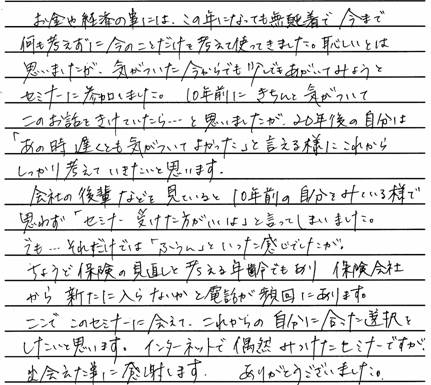 お金や経済の事には、この年になっても無頓着で今まで
何も考えずに今のことだけを考えて使ってきました。恥しいとは
思いましたが、気がついた今からでも少しでもあがいてみようと
セミナーに参加しました。10年前にきちんと気がついて
このお話をきけていたら…と思いましたが、20年後の自分は
「あの時遅くとも気がついてよかった」と言える様にこれから
しっかり考えていきたいと思います。
会社の後輩などを見ていると10年前の自分をみている様で
思わず「セミナー受けた方がいいよ」と言ってしまいました。
でも…それだけでは「ふうん」といった感じでしたが。
ちょうど保険の見直しを考える年齢でもあり 保険会社
から新たに入らないかと電話が頻回にあります。
ここでこのセミナーに会えて、これからの自分に合った選択を
したいと思います。インターネットで偶然みつけたセミナーですが、
出会えた事に感謝します。ありがとうございました。